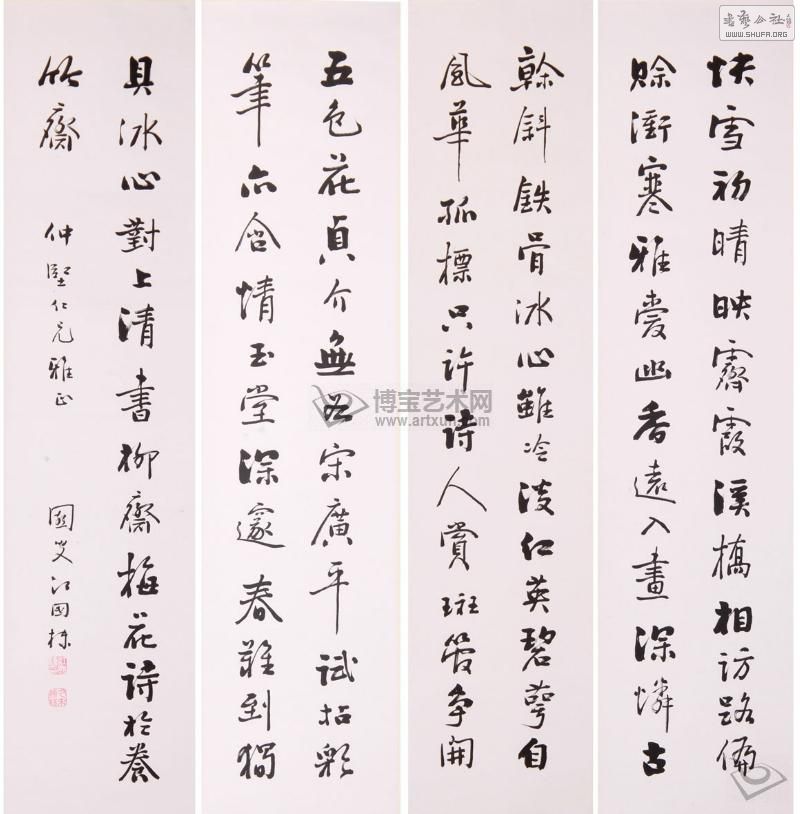 书艺公社
WWW.SHUFA.ORG
快雪初晴映霽霞溪橋相訪路偏
賒衝寒雅愛幽香遠入畫深憐古
榦斜鉄骨冰心雖冷淡仁英碧萼自
風華孤標只許詩人賞斑管争開
五色花貞介無宋廣平試拈彩
筆亦含情玉堂深邃春難到獨
具冰心對上清書柳齋梅花詩於養
竹齋 仲堅仁兄雅正 國叟江國棟
博宝艺术网
www.artxun.com